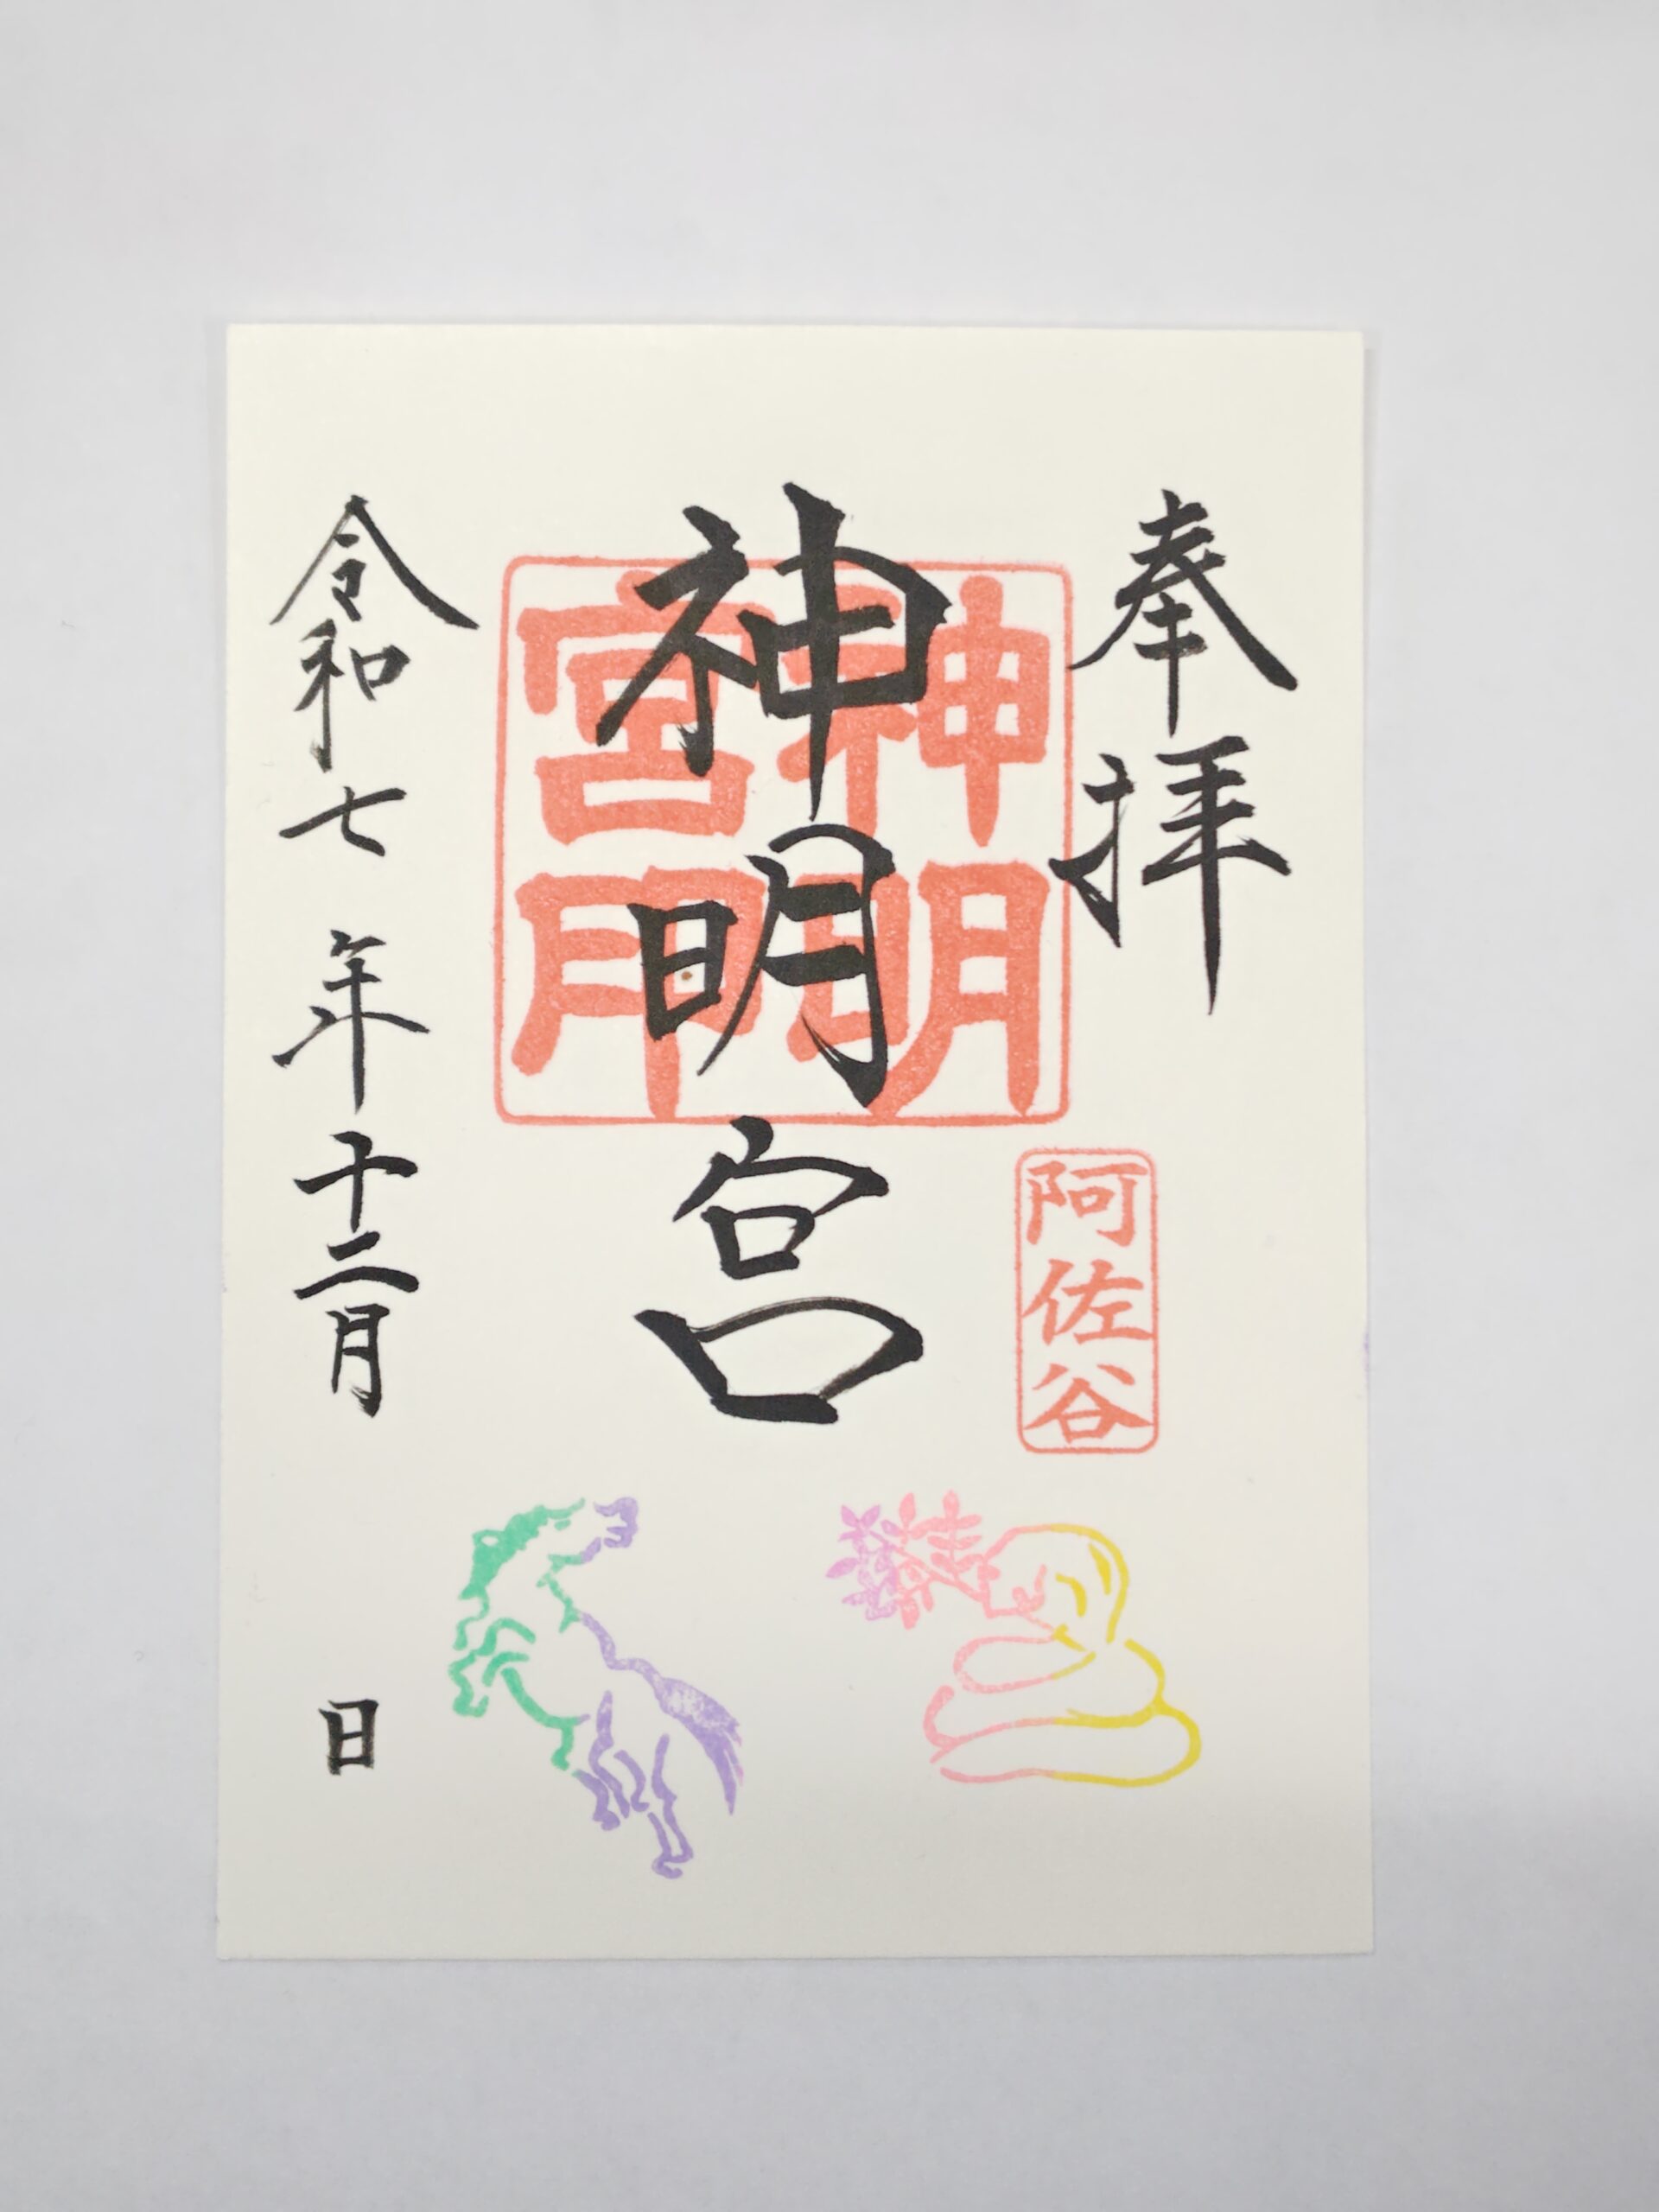 奉拝
神明宮
神明
宮印
阿佐谷
令和七年十二月 日